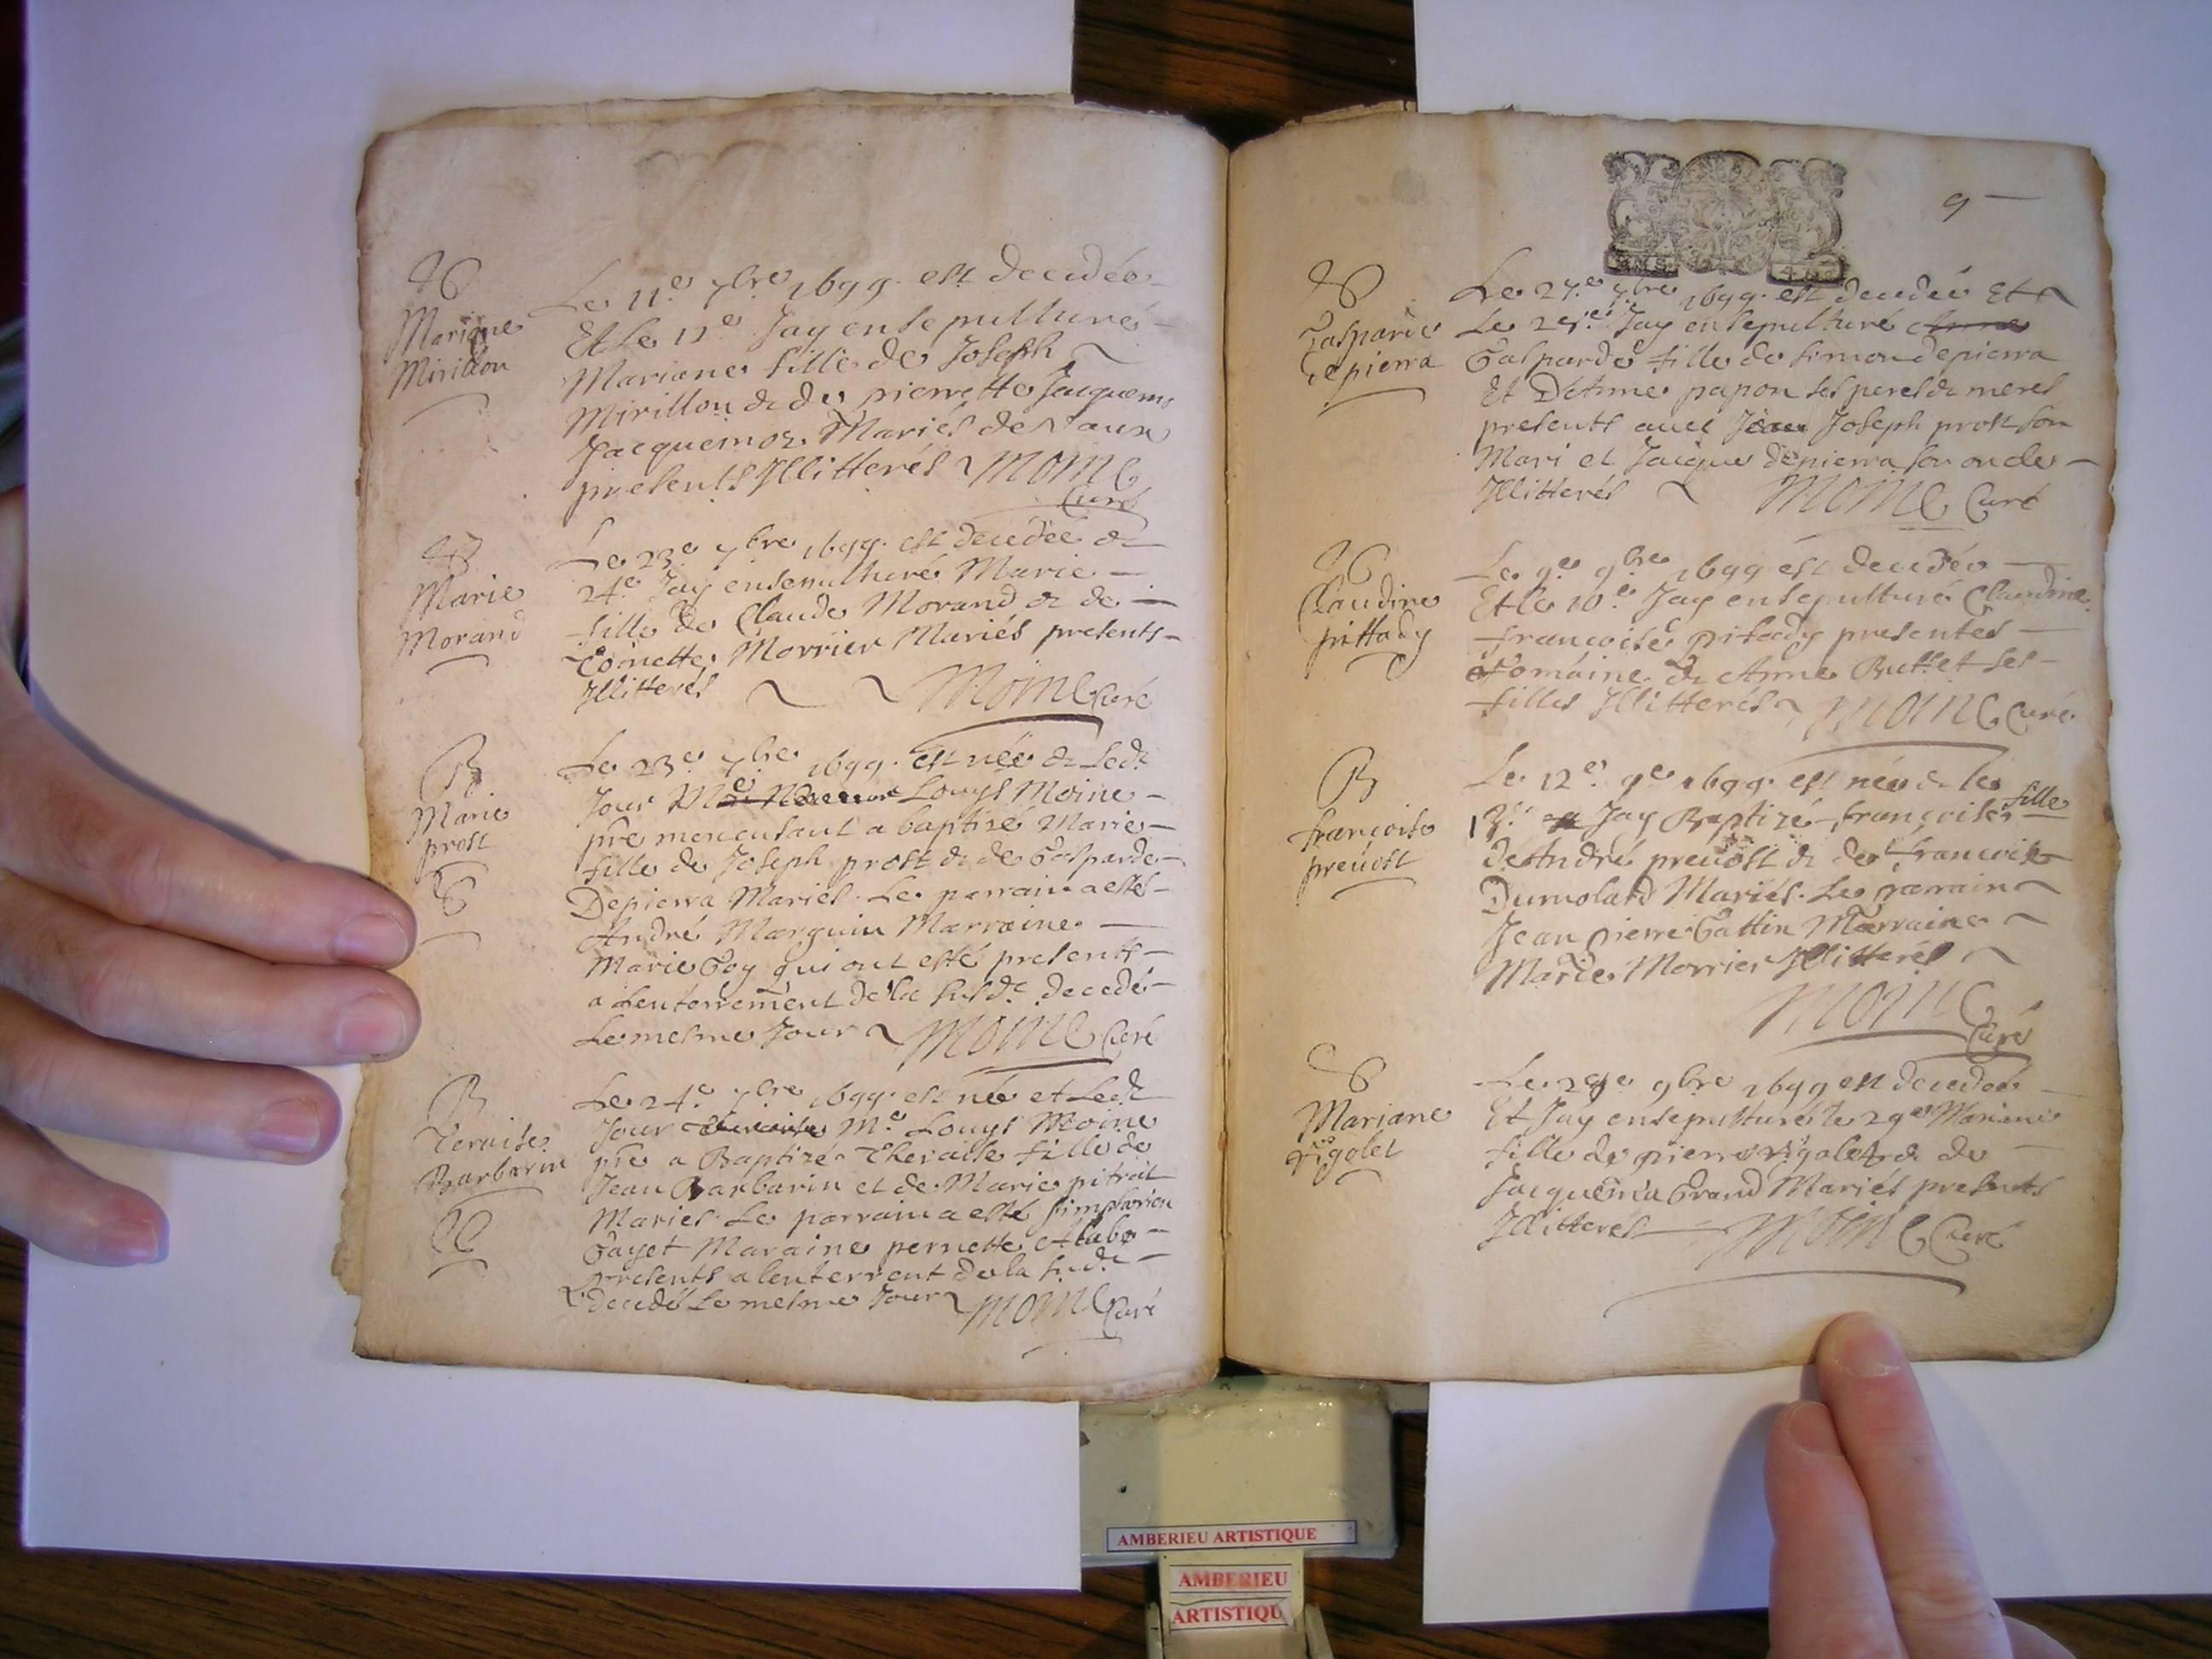 Mariane
Mirillon
Le 11e 7bre 1699. est decedée
Et le 12e Jay ensepulturé
Mariane fille de Joseph
Mirillon & de pierrette Jacquem
Jacquemoz Mariés de Vaux
presents Illitterés Moine
Curé
Marie
Morand
Le 23e 7bre 1699. est decedée &
24e Jay ensepulturé Marie
fille de Claude Morand & de
Morrier Mariés presents
Illitterés Moine Curé
B
Marie
prost
Le 23e 7bre 1699. est née & Ledt
Jour Me Louys Moine
pre mon a baptizé Marie
fille de Joseph prost & de Gasparde
Depierra Mariés. Le parrain a esté
André Marguin Marraine
Marie Goy qui ont esté presents
a Lenterrement de la susde decedé
Le mesme Jour Moine Curé
B
Teraise
Barbarin
Le 24e 7bre 1699. est née et Ledt
Jour Me Louys Moine
pre a Baptizé Theraise fille de
Jean Barbarin et de Marie pitrat
Mariés Le parrain a esté simphorien
Gayet Maraine pernette
presents a lenterrent de la sude
decedé Le mesme Jour Moine Curé
9
Gasparde
depierra
Le 27e 7bre 1699. est decedée Et
Le Jay ensepulturé Anne
Gasparde fille de simon depierra
Et DeAnne papon ses peres & meres
presents avec Jean Joseph prost son
Mari et Jacque depierra son oncle
Illitterés Moine Curé
Claudine
pittady
Le 9e 9bre 1699 est decedée
Et le 10e Jay ensepulturé Claudine
francoise presentes
& Anne Buttet ses
filles Illitterés Moine Curé
B
françoise
prevost
Le 12e 9e 1699. est née & le
13e Jay Baptizé françoise fille
de André prevost & de francoise
Dumolard Mariés. Le parrain
Jean pierre Gattin Marraine
Marie Morrier Illitterés
Moine
Curé
Mariane
rigolet
Le 9bre 1699 est decedée
Et Jay ensepulturé le 29e Mariane
fille de pierre rigolet & de
Jacquema Grand Mariés presents
Illitterés Moine Curé
AMBERIEU ARTISTIQUE
AMBERIEU
ARTISTIQU